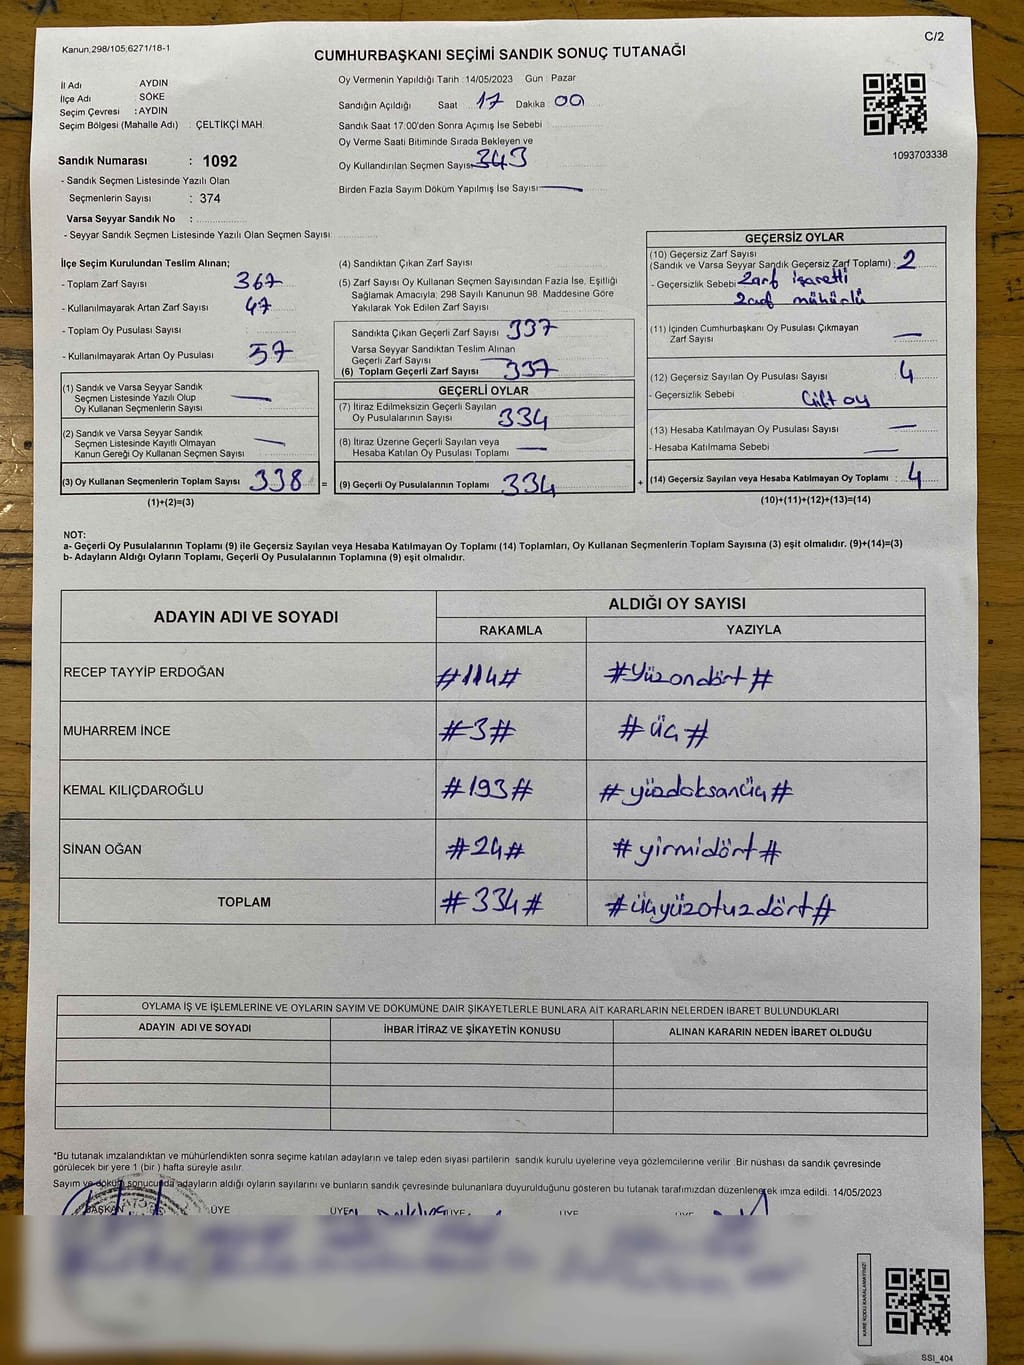 Kanun,298/105,6271/18-1
C/2
CUMHURBAŞKANI SEÇİMİ SANDIK SONUÇ TUTANAĞI
İl Adı : AYDIN
İlçe Adı : SÖKE
Seçim Çevresi : AYDIN
Seçim Bölgesi (Mahalle Adı) : ÇELTİKÇİ MAH.
Oy Vermenin Yapıldığı Tarih : 14/05/2023 Gün : Pazar
Sandığın Açıldığı Saat 17 Dakika 00
Sandık Saat 17:00'den Sonra Açımış İse Sebebi
Oy Verme Saati Bitiminde Sırada Bekleyen ve
Oy Kullandırılan Seçmen Sayısı 343
Birden Fazla Sayım Döküm Yapılmış İse Sayısı —
1093703338
Sandık Numarası : 1092
- Sandık Seçmen Listesinde Yazılı Olan
Seçmenlerin Sayısı : 374
Varsa Seyyar Sandık No :
- Seyyar Sandık Seçmen Listesinde Yazılı Olan Seçmen Sayısı:
İlçe Seçim Kurulundan Teslim Alınan;
- Toplam Zarf Sayısı 367
- Kullanılmayarak Artan Zarf Sayısı 47
- Toplam Oy Pusulası Sayısı
- Kullanılmayarak Artan Oy Pusulası 57
(1) Sandık ve Varsa Seyyar Sandık
Seçmen Listesinde Yazılı Olup
Oy Kullanan Seçmenlerin Sayısı —
(2) Sandık ve Varsa Seyyar Sandık
Seçmen Listesinde Kayıtlı Olmayan
Kanun Gereği Oy Kullanan Seçmen Sayısı —
(3) Oy Kullanan Seçmenlerin Toplam Sayısı 338 =
(1)+(2)=(3)
(4) Sandıktan Çıkan Zarf Sayısı
(5) Zarf Sayısı Oy Kullanan Seçmen Sayısından Fazla İse, Eşitliği
Sağlamak Amacıyla; 298 Sayılı Kanunun 98. Maddesine Göre
Yakılarak Yok Edilen Zarf Sayısı
Sandıkta Çıkan Geçerli Zarf Sayısı 337
Varsa Seyyar Sandıktan Teslim Alınan
Geçerli Zarf Sayısı
(6) Toplam Geçerli Zarf Sayısı 337
GEÇERLİ OYLAR
(7) İtiraz Edilmeksizin Geçerli Sayılan
Oy Pusulalarının Sayısı 334
(8) İtiraz Üzerine Geçerli Sayılan veya
Hesaba Katılan Oy Pusulası Toplamı —
(9) Geçerli Oy Pusulalarının Toplamı 334 +
GEÇERSİZ OYLAR
(10) Geçersiz Zarf Sayısı
(Sandık ve Varsa Seyyar Sandık Geçersiz Zarf Toplamı) : 2
- Geçersizlik Sebebi Zarf işaretli
Zarf mühürlü
(11) İçinden Cumhurbaşkanı Oy Pusulası Çıkmayan
Zarf Sayısı —
(12) Geçersiz Sayılan Oy Pusulası Sayısı 4
- Geçersizlik Sebebi Çift oy
(13) Hesaba Katılmayan Oy Pusulası Sayısı —
- Hesaba Katılmama Sebebi —
(14) Geçersiz Sayılan veya Hesaba Katılmayan Oy Toplamı : 4
(10)+(11)+(12)+(13)=(14)
NOT:
a- Geçerli Oy Pusulalarının Toplamı (9) ile Geçersiz Sayılan veya Hesaba Katılmayan Oy Toplamı (14) Toplamları, Oy Kullanan Seçmenlerin Toplam Sayısına (3) eşit olmalıdır. (9)+(14)=(3)
b- Adayların Aldığı Oyların Toplamı, Geçerli Oy Pusulalarının Toplamına (9) eşit olmalıdır.
ADAYIN ADI VE SOYADI
ALDIĞI OY SAYISI
RAKAMLA YAZIYLA
RECEP TAYYİP ERDOĞAN #114# #Yüzondört#
MUHARREM İNCE #3# #üç#
KEMAL KILIÇDAROĞLU #193# #yüzdoksanüç#
SİNAN OĞAN #24# #yirmidört#
TOPLAM #334# #üçyüzotuzdört#
OYLAMA İŞ VE İŞLEMLERİNE VE OYLARIN SAYIM VE DÖKÜMÜNE DAİR ŞİKAYETLERLE BUNLARA AİT KARARLARIN NELERDEN İBARET BULUNDUKLARI
ADAYIN ADI VE SOYADI İHBAR İTİRAZ VE ŞİKAYETİN KONUSU ALINAN KARARIN NEDEN İBARET OLDUĞU
*Bu tutanak imzalandıktan ve mühürlendikten sonra seçime katılan adayların ve talep eden siyasi partilerin sandık kurulu üyelerine veya gözlemcilerine verilir. Bir nüshası da sandık çevresinde
görülecek bir yere 1 (bir ) hafta süreyle asılır.
Sayım ve döküm sonucunda adayların aldığı oyların sayılarını ve bunların sandık çevresinde bulunanlara duyurulduğunu gösteren bu tutanak tarafımızdan düzenlenerek imza edildi. 14/05/2023
BAŞKAN ÜYE ÜYE ÜYE ÜYE ÜYE
KARE KODU KARALAMAYINIZ!
SSİ_404